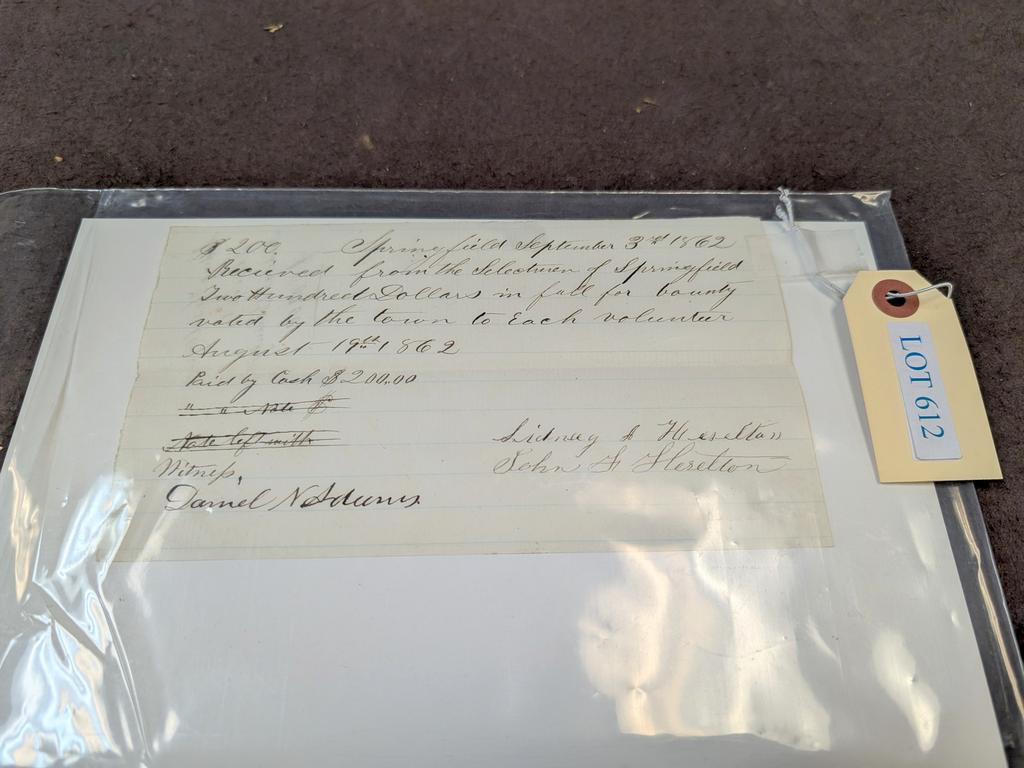 $200. Springfield September 3rd 1862
Recieved from the Selectmen of Springfield
Two Hundred Dollars in full for bounty
voted by the town to Each volunteer
August 19th 1862
Paid by Cash $200.00
" " Note $
Note left with
Witness,
Daniel N Adams
Sidney A Heselton
John F Heselton
LOT 612